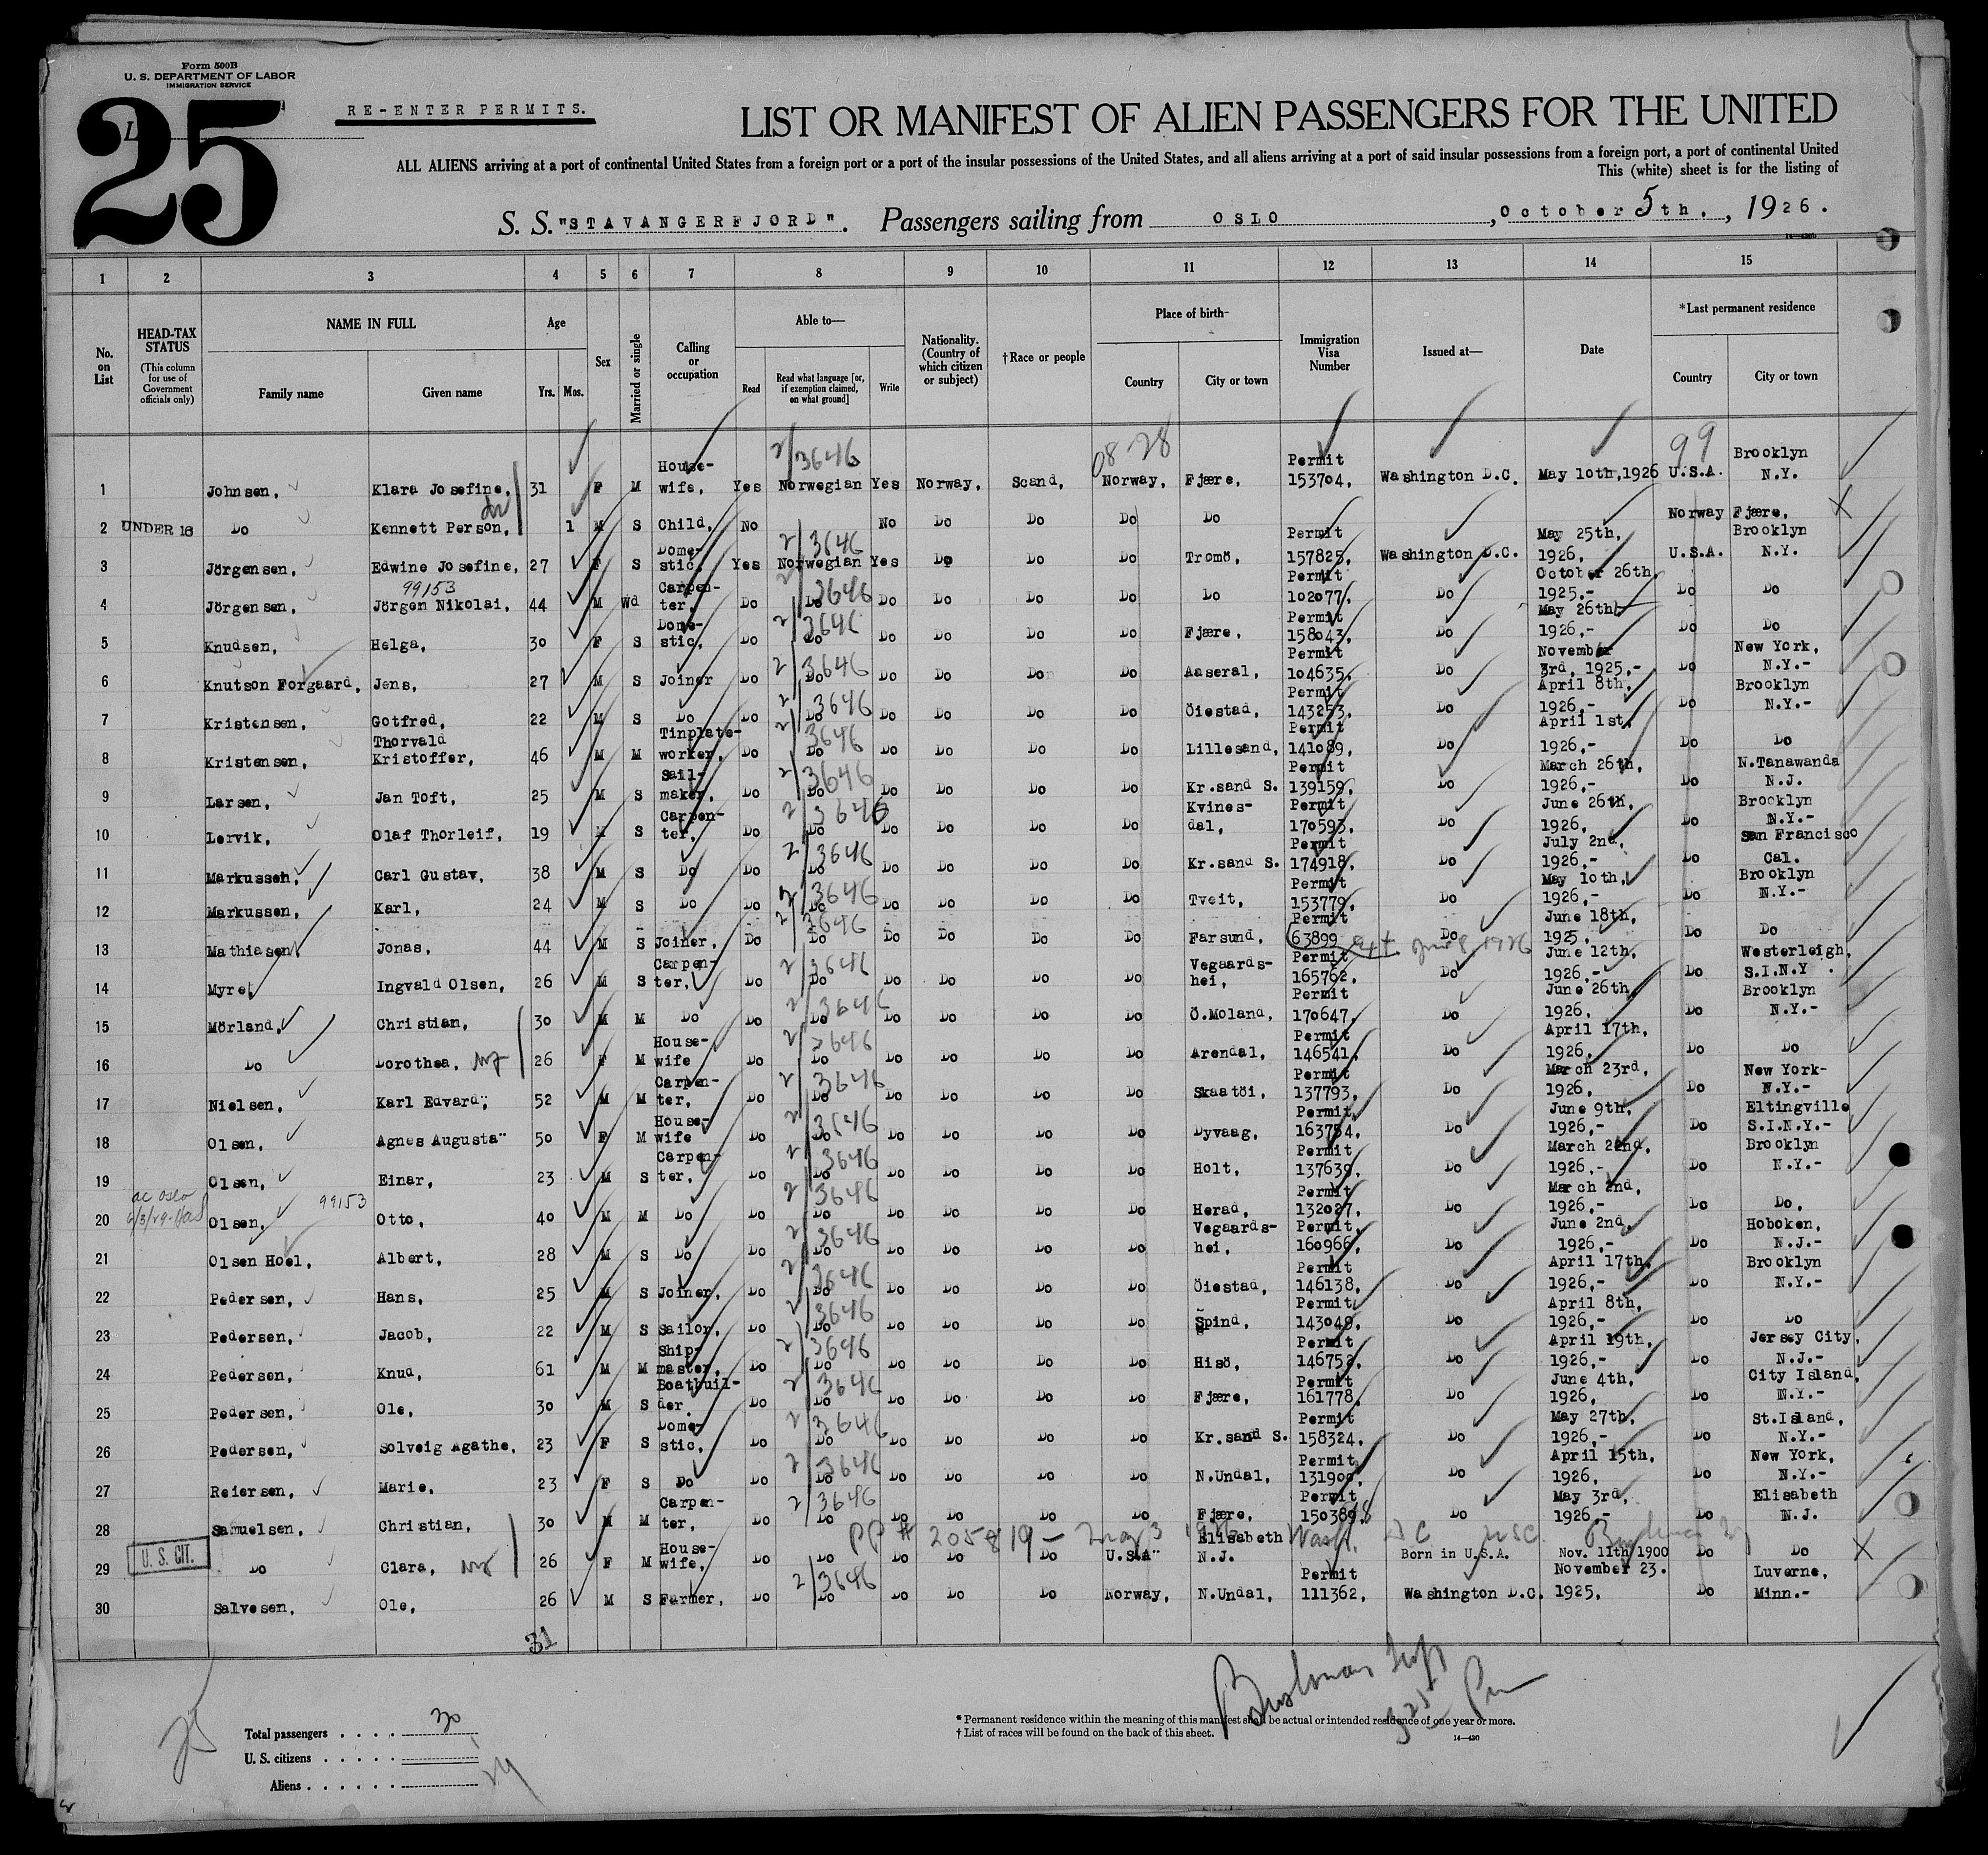 Form 500B
U. S. DEPARTMENT OF LABOR
IMMIGRATION SERVICE
25
RE-ENTER PERMITS.
LIST OR MANIFEST OF ALIEN PASSENGERS FOR THE UNITED
ALL ALIENS arriving at a port of continental United States from a foreign port or a port of the insular possessions of the United States, and all aliens arriving at a port of said insular possessions from a foreign port, a port of continental United
This (white) sheet is for the listing of
S. S. "STAVANGERFJORD". Passengers sailing from OSLO, October 5th., 1926.
14—430b
1 2 3 4 5 6 7 8 9 10 11 12 13 14 15
No. on List
HEAD-TAX STATUS (This column for use of Government officials only)
NAME IN FULL
Family name Given name
Age
Yrs. Mos.
Sex
Married or single
Calling or occupation
Able to—
Read Read what language [or, if exemption claimed, on what ground] Write
Nationality. (Country of which citizen or subject)
†Race or people
Place of birth-
Country City or town
Immigration Visa Number
Issued at—
Date
*Last permanent residence
Country City or town
2/3646 08-28 99
1 Johnsen, Klara Josefine, 31 F M House-wife, Yes Norwegian Yes Norway, Scand, Norway, Fjære, Permit 153704, Washington D.C. May 10th,1926 U.S.A. Brooklyn N.Y.
2 UNDER 16 Do Kennett Person, 1 M S Child, No No Do Do Do Do Norway Fjære,
3 Jörgensen, Edwine Josefine, 27 F S Dome-stic, Yes 2/3646 Norwegian Yes Do Do Do Tromö, Permit 157825, Washington D.C. May 25th, 1926, U.S.A. Brooklyn N.Y.
99153
4 Jörgensen, Jörgen Nikolai, 44 M Wd Carpen-ter, Do 2/3646 Do Do Do Do Do Do Permit 102077, Do October 26th, 1925,- Do Do
5 Knudsen, Helga, 30 F S Dome-stic, Do 2/3646 Do Do Do Do Do Fjære, Permit 158043, Do May 26th, 1926,- Do Do
6 Knutson Forgaard, Jens, 27 M S Joiner Do 2/3646 Do Do Do Do Do Aaseral, Permit 104635, Do November 3rd, 1925,- Do New York, N.Y.-
7 Kristensen, Gotfred, 22 M S Do Do 2/3646 Do Do Do Do Do Öiestad, Permit 143253, Do April 8th, 1926,- Do Brooklyn N.Y.-
8 Kristensen, Thorvald Kristoffer, 46 M M Tinplate-worker, Do 2/3646 Do Do Do Do Do Lillesand, Permit 141089, Do April 1st, 1926,- Do Do
9 Larsen, Jan Toft, 25 M S Sail-maker, Do 2/3646 Do Do Do Do Do Kr.sand S. Permit 139159, Do March 26th, 1926,- Do N.Tanawanda N.J.
10 Lervik, Olaf Thorleif, 19 M S Carpen-ter, Do 2/3646 Do Do Do Do Do Kvines-dal, Permit 170593, Do June 26th, 1926, Do Brooklyn N.Y.-
11 Markussen, Carl Gustav, 38 M S Do Do 2/3646 Do Do Do Do Do Kr.sand S. Permit 174918, Do July 2nd, 1926,- Do San Francisco Cal.
12 Markussen, Karl, 24 M S Do Do 2/3646 Do Do Do Do Do Tveit, Permit 153779, Do May 10th, 1926,- Do Brooklyn N.Y.-
13 Mathiasen, Jonas, 44 M S Joiner, Do 2/3646 Do Do Do Do Do Farsund, Permit 63899 Do June 18th, 1925, Do Do
14 Myre, Ingvald Olsen, 26 M S Carpen-ter, Do 2/3646 Do Do Do Do Do Vegaards-hei, Permit 165762, Do June 12th, 1926,- Do Westerleigh, S.I.N.Y.
15 Mörland, Christian, 30 M M Do Do 2/3646 Do Do Do Do Do Ö.Moland, Permit 170647, Do June 26th, 1926, Do Brooklyn N.Y.-
16 Do Dorothea, 26 F M House-wife Do 2/3646 Do Do Do Do Do Arendal, Permit 146541, Do April 17th, 1926, Do Do
17 Nielsen, Karl Edvard, 52 M M Carpen-ter, Do 2/3646 Do Do Do Do Do Skaatöi, Permit 137793, Do March 23rd, 1926, Do New York- N.Y.-
18 Olsen, Agnes Augusta" 50 F M House-wife Do 2/3646 Do Do Do Do Do Dyvaag, Permit 163754, Do June 9th, 1926,- Do Eltingville S.I.N.Y.-
19 Olsen, Einar, 23 M S Carpen-ter, Do 2/3646 Do Do Do Do Do Holt, Permit 137639, Do March 22nd, 1926,- Do Brooklyn N.Y.-
20 Olsen, 99153 Otto, 40 M M Do Do 2/3646 Do Do Do Do Do Herad, Permit 132027, Do March 2nd, 1926,- Do Do,
21 Olsen Hoel, Albert, 28 M S Do Do 2/3646 Do Do Do Do Do Vegaards-hei, Permit, 160966, Do June 2nd, 1926,- Do Hoboken, N.J.-
22 Pedersen, Hans, 25 M S Joiner, Do 2/3646 Do Do Do Do Do Öiestad, Permit 146138, Do April 17th, 1926,- Do Brooklyn N.Y.-
23 Pedersen, Jacob, 22 M S Sailor, Do 2/3646 Do Do Do Do Do Spind, Permit, 143049, Do April 8th, 1926,- Do Do
24 Pedersen, Knud, 61 M M Ship-master, Do 2/3646 Do Do Do Do Do Hisö, Permit 146752, Do April 19th, 1926,- Do Jersey City, N.J.-
25 Pedersen, Ole, 30 M S Boatbuil-der Do 2/3646 Do Do Do Do Do Fjære, Permit 161778, Do June 4th, 1926, Do City Island, N.Y.-
26 Pedersen, Solveig Agathe, 23 F S Dome-stic, Do 2/3646 Do Do Do Do Do Kr.sand S. Permit 158324, Do May 27th, 1926,- Do St.Island, N.Y.-
27 Reiersen, Marie, 23 F S Do Do 2/3646 Do Do Do Do Do N.Undal, Permit, 131900, Do April 15th, 1926, Do New York, N.Y.-
28 Samuelsen, Christian, 30 M M Carpen-ter, Do 2/3646 Do Do Do Do Do Fjære, Permit, 150389, Do May 3rd, 1926,- Do Elisabeth N.J.
PP # 205819 - May 3 1926 Wash. DC
29 U.S. CIT. Do Clara, 26 F M House-wife, Do Do Do Do Do U.S.A" Elisabeth N.J. Born in U.S.A. Nov. 11th 1900 Do Do
30 Salvesen, Ole, 26 M S Farmer, Do 2/3646 Do Do Do Do Norway, N.Undal, Permit 111362, Washington D.C. November 23. 1925, Do Luverne, Minn.-
31
Total passengers . . . . 30
U. S. citizens . . . . .
Aliens . . . . . .
* Permanent residence within the meaning of this manifest shall be actual or intended residence of one year or more.
† List of races will be found on the back of this sheet.
14—430